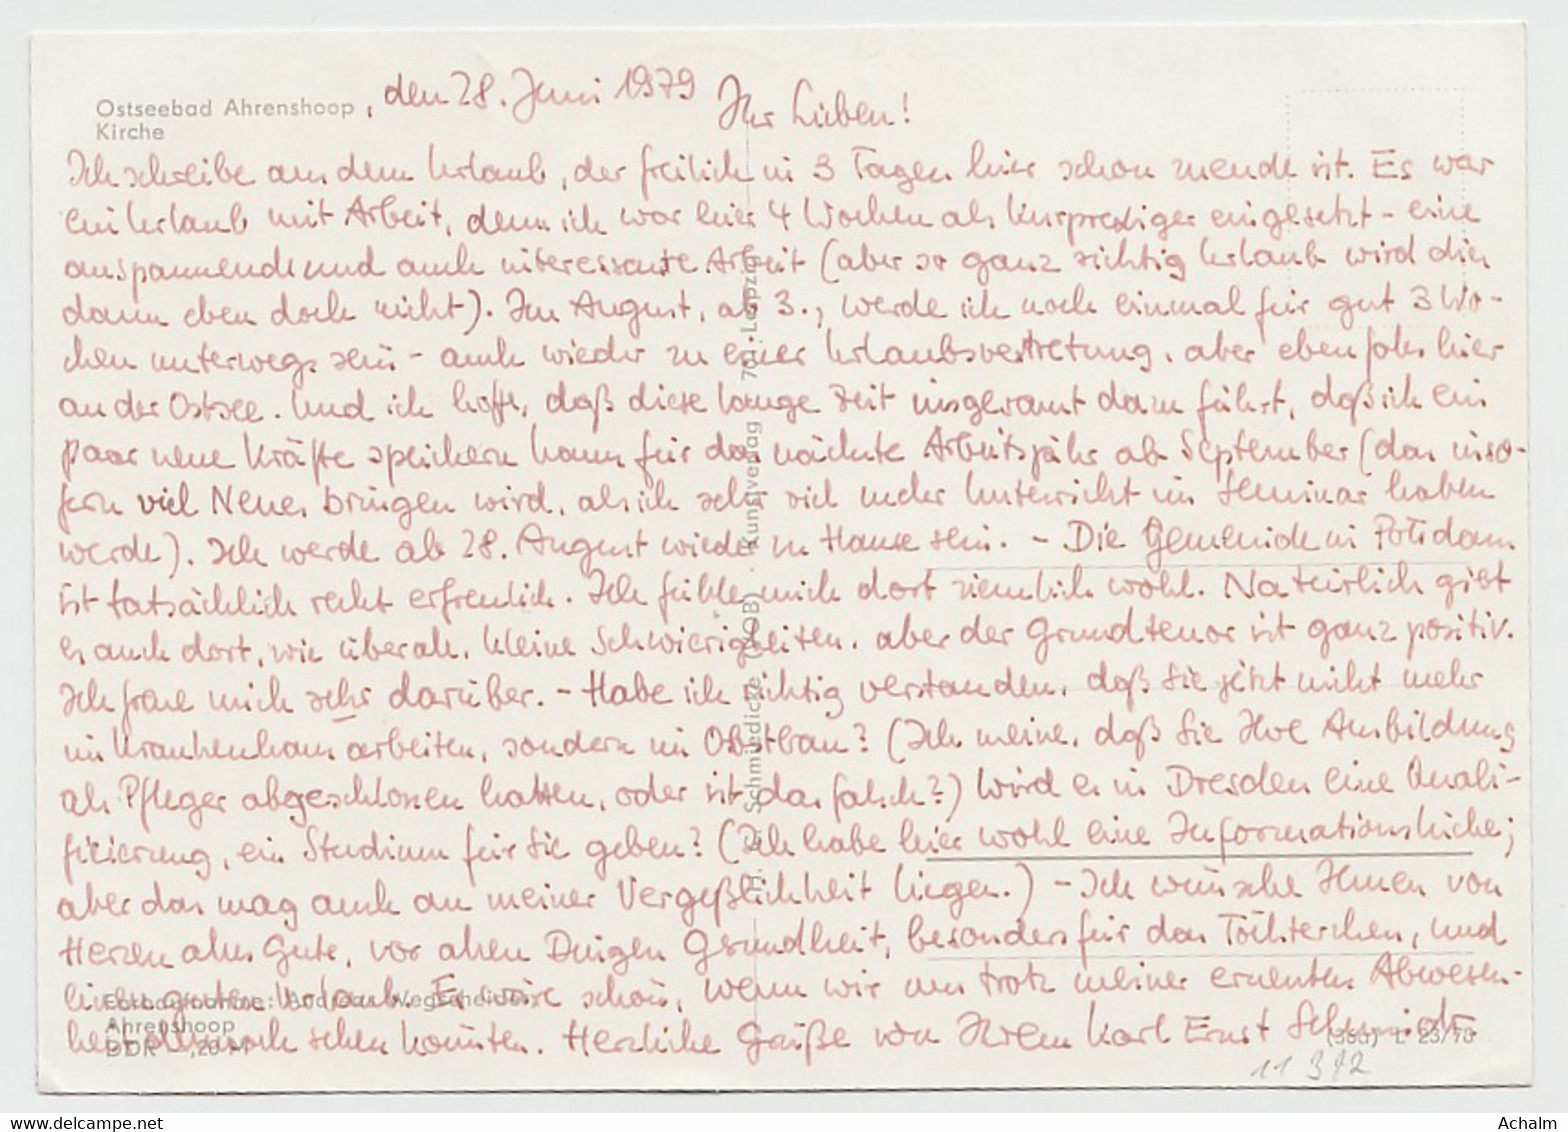 Ostseebad Ahrenshoop, den 28. Juni 1979 Ihr Lieben!
Kirche
Ich schreibe aus dem Urlaub, der freilich in 3 Tagen hier schon zuende ist. Es war
ein Urlaub mit Arbeit, denn ich war hier 4 Wochen als Kurprediger eingesetzt - eine
anspannende und auch interessante Arbeit (aber so ganz richtig Urlaub wird die
dann eben doch nicht). Im August, ab 3., werde ich noch einmal für gut 3 Wo-
chen unterwegs sein - auch wieder zu einer Urlaubsvertretung, aber ebenfalls hier
an der Ostsee. Und ich hoffe, daß diese lange Zeit insgesamt dazu führt, daß ich ein
paar neue Kräfte speichern kann für das nächste Arbeitsjahr ab September (das inso-
fern viel Neues bringen wird, als ich sehr viel mehr Unterricht im Seminar haben
werde). Ich werde ab 28. August wieder zu Hause sein. - Die Gemeinde in Potsdam
ist tatsächlich recht erfreulich. Ich fühle mich dort ziemlich wohl. Natürlich gibt
es auch dort, wie überall, kleine Schwierigkeiten, aber der Grundtenor ist ganz positiv.
Ich freue mich sehr darüber. - Habe ich richtig verstanden, daß Sie jetzt nicht mehr
im Krankenhaus arbeiten, sondern im Obstbau? (Ich meine, daß Sie Ihre Ausbildung
als Pfleger abgeschlossen hatten, oder ist das falsch?) Wird es in Dresden eine Quali-
fizierung, ein Studium für Sie geben? (Ich habe hier wohl eine Informationslücke;
aber das mag auch an meiner Vergeßlichkeit liegen.) - Ich wünsche Ihnen von
Herzen alles Gute, vor allen Dingen Gesundheit, besonders für das Töchterchen, und
einen guten Urlaub. Es wäre schön, wenn wir uns trotz meiner erneuten Abwesen-
heit noch sehen könnten. Herzliche Grüße von Ihrem Karl Ernst Schmidt
Farbaufnahme: Andreas Wegscheider,
Ahrenshoop
DDR -,20 M
H. C. Schmiedicke (KOB) · Kunstverlag · 701 Leipzig
11 392
Achalm